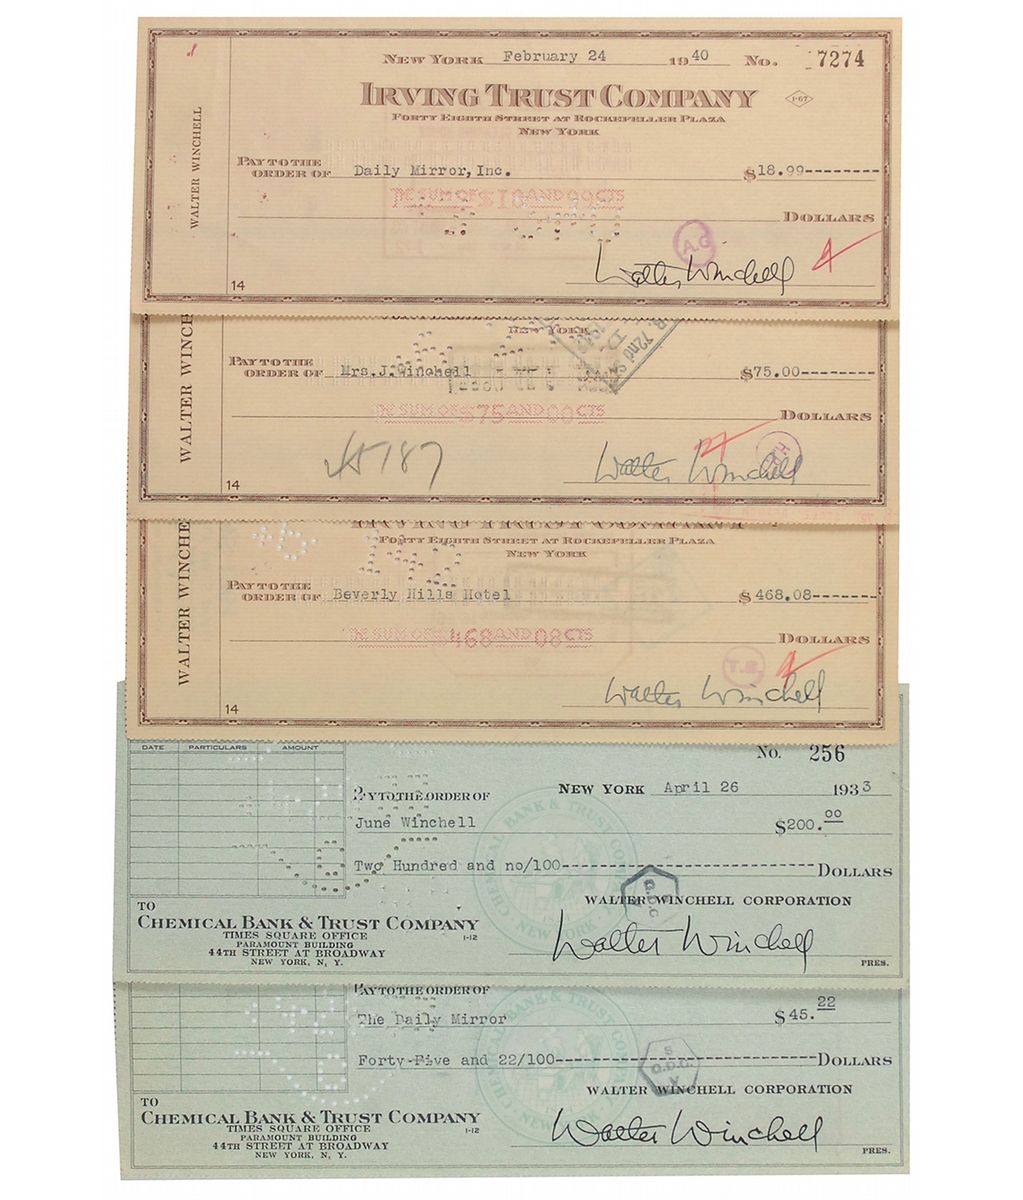 NEW YORK February 24 1940 No. 7274
IRVING TRUST COMPANY 1-67
FORTY EIGHTH STREET AT ROCKEFELLER PLAZA
NEW YORK
WALTER WINCHELL
PAY TO THE
ORDER OF Daily Mirror, Inc. $18.99---------
THE SUM OF $18 AND 99 CTS
DOLLARS
A.G
Walter Winchell
14
NEW YORK
72nd
WALTER WINCHE
PAY TO THE
ORDER OF Mrs. J. Winchell $75.00---------
THE SUM OF $75 AND 00 CTS
DOLLARS
Walter Winchell
14
IRVING TRUST COMPANY
FORTY EIGHTH STREET AT ROCKEFELLER PLAZA
NEW YORK
WALTER WINCHE
PAY TO THE
ORDER OF Beverly Hills Hotel $468.08--------
THE SUM OF $468 AND 08 CTS
DOLLARS
Walter Winchell
14
DATE PARTICULARS AMOUNT
No. 256
NEW YORK April 26 1933
PAY TO THE ORDER OF
June Winchell $200.00
Two Hundred and no/100------------------------------ DOLLARS
CHEMICAL BANK & TRUST COMPANY
NEW YORK
WALTER WINCHELL CORPORATION
TO
CHEMICAL BANK & TRUST COMPANY
TIMES SQUARE OFFICE 1-12
PARAMOUNT BUILDING
44TH STREET AT BROADWAY
NEW YORK, N. Y.
Walter Winchell
PRES.
PAY TO THE ORDER OF
The Daily Mirror $45.22
Forty-Five and 22/100------------------------------ DOLLARS
WALTER WINCHELL CORPORATION
TO
CHEMICAL BANK & TRUST COMPANY
TIMES SQUARE OFFICE 1-12
PARAMOUNT BUILDING
44TH STREET AT BROADWAY
NEW YORK, N. Y.
Walter Winchell
PRES.